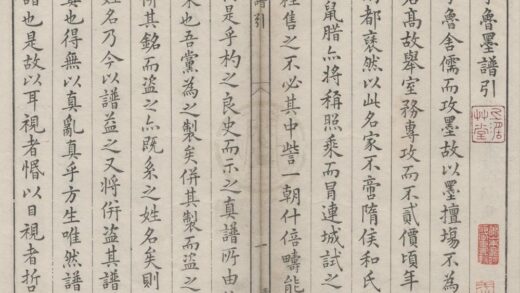 于魯墨譜引
于魯舍儒而攻墨故以墨擅場不為
名高故舉室務專攻而不貳價頃年
都褎然以此名家不啻隋侯和氏
鼠腊亦將稱照乘而冒連城試之
售之不必其中訾一朝什倍疇能
譜引
一
是乎杓之良史而示之真譜所由
來也吾黨為之製矣併其製而盜之
併其銘而盜之亦既系之姓名矣則
姓名乃今以譜益之又將併盜其譜
真也得無以真亂真乎方生唯然譜
譜也是故以耳視者惛以目視者哲